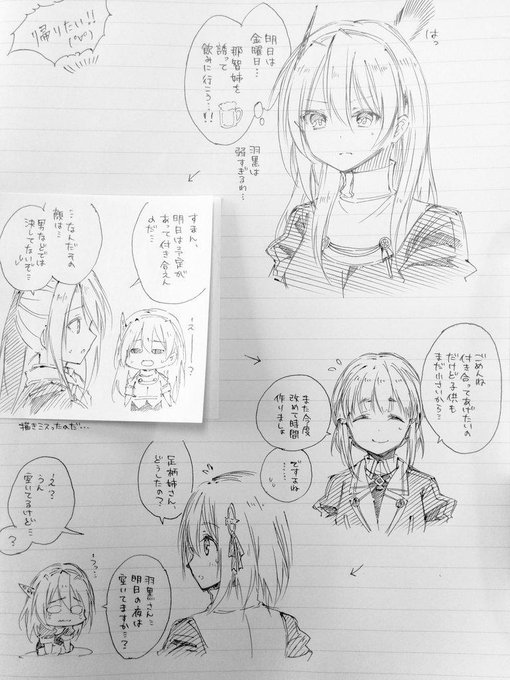 帰りたい!!
はっ
明日は
金曜日…
那智姉を
誘って
飲みに行こう…!!
羽黒は
弱すぎるわ…
すまん、
明日は予定が
あって付き合えん
のだ…
…なんだその
顔は…
男などでは
決してないぞ…
描きミスったのだ…
ごめんね
付き合ってあげたいの
だけど子供も
まだ小さいから…
また今度
改めて時間
作りましょ
ですよね
……
足柄姉さん、
どうしたの?
羽黒さん…
明日の夜は
空いてますか…?
え?
うん
空いてるけど…
?